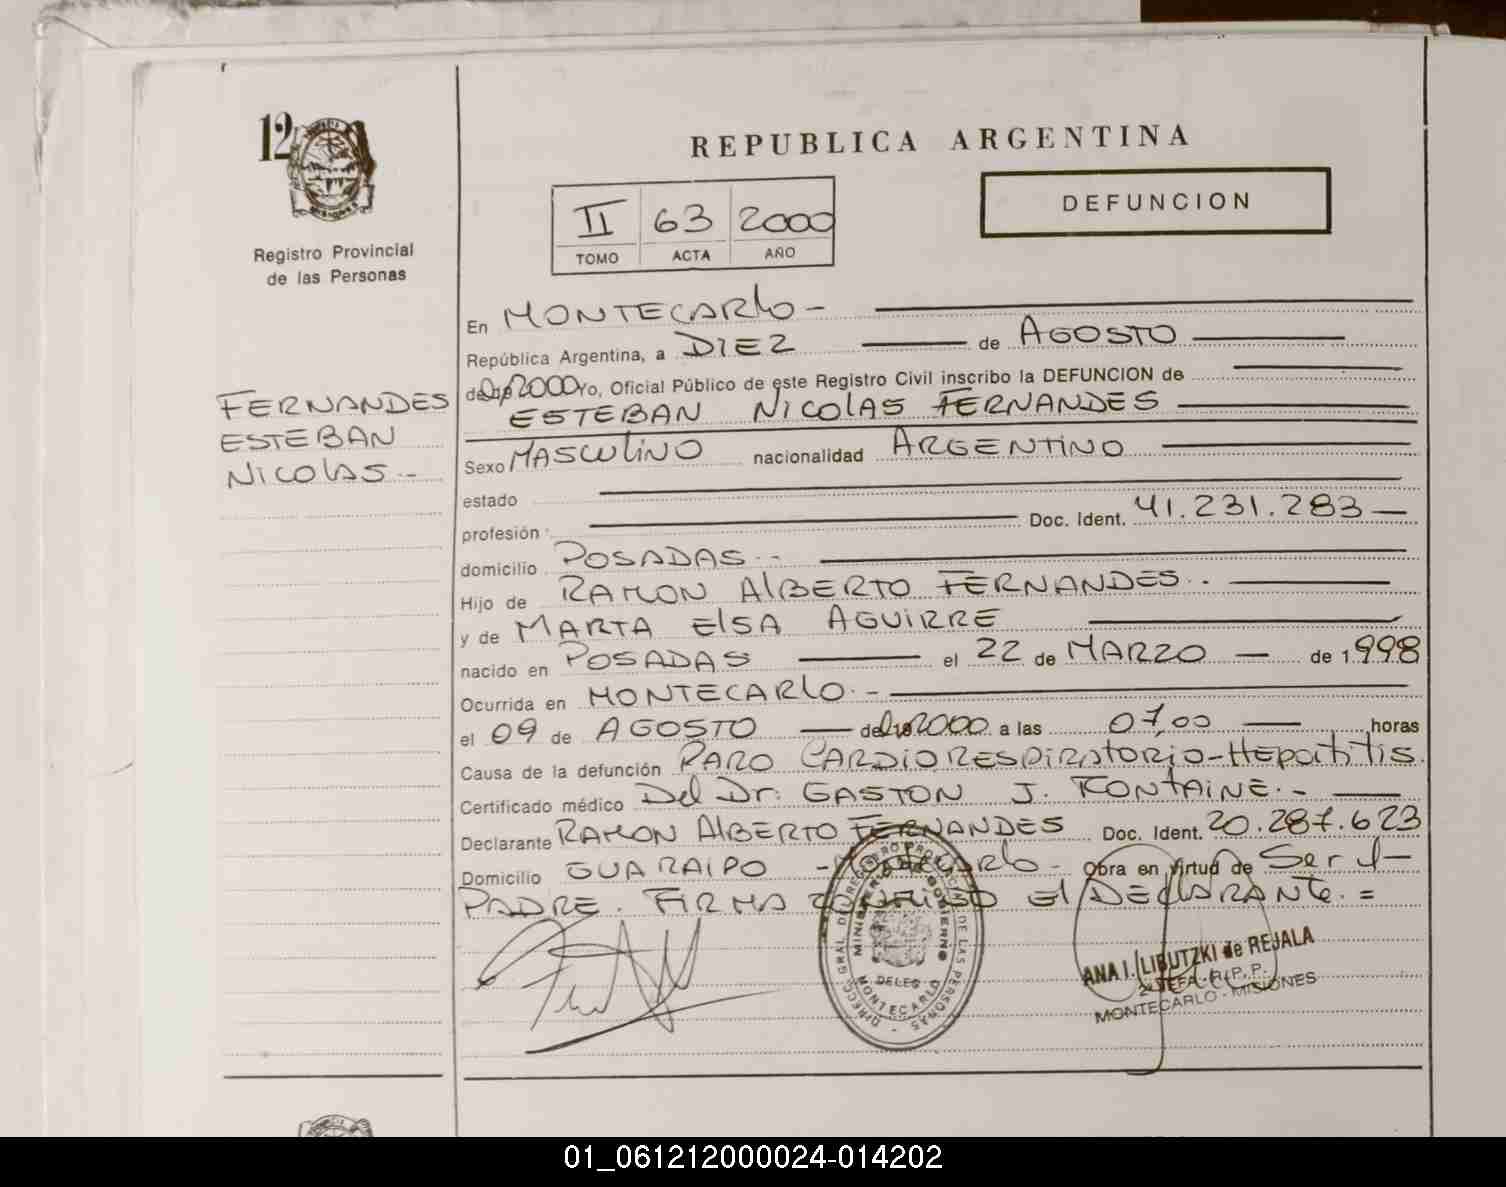 12
Registro Provincial
de las Personas
FERNANDES
ESTEBAN
NICOLAS.-
REPUBLICA ARGENTINA
II 63 2000
TOMO ACTA AÑO
DEFUNCION
En MONTECARLO -
República Argentina, a DIEZ de AGOSTO
del 2000 Yo, Oficial Público de este Registro Civil inscribo la DEFUNCION de
ESTEBAN NICOLAS FERNANDES
Sexo MASCULINO nacionalidad ARGENTINO
estado
profesión Doc. Ident. 41.231.283 —
domicilio POSADAS.-
Hijo de RAMON ALBERTO FERNANDES.-
y de MARTA ELSA AGUIRRE
nacido en POSADAS el 22 de MARZO — de 1.998
Ocurrida en MONTECARLO.-
el 09 de AGOSTO — del 2000 a las 07,00 horas
Causa de la defunción PARO CARDIORESPIRATORIO-HEPATITIS.
Certificado médico Del Dr: GASTON J. FONTAINE.-
Declarante RAMON ALBERTO FERNANDES Doc. Ident. 20.287.623
Domicilio GUARAIPO - MONTECARLO - Obra en virtud de Ser el
PADRE. FIRMA CONMIGO El DECLARANTE.=
DIRECC. GRAL. DEL REGISTRO PROVINCIAL DE LAS PERSONAS
MINISTERIO DE GOBIERNO
DELEG.
MONTECARLO
ANA I. LIBUTZKI de REJALA
R.P.P.
MONTECARLO - MISIONES
01_061212000024-014202